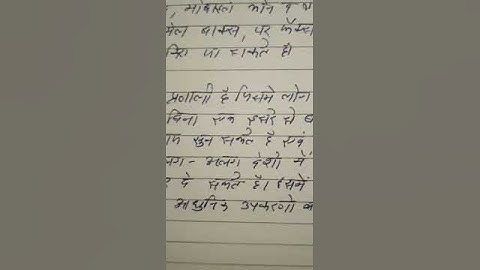 , मोबाइल फोन व
मेल बाक्स, पर फैक्स
किए जा सकते हैं।
प्रणाली है जिसमें लोग
बिना एक दूसरे से
सुन सकते है एवं
- अलग देशो में
दे सकते है। इसमें
आधुनिक उपकरणो